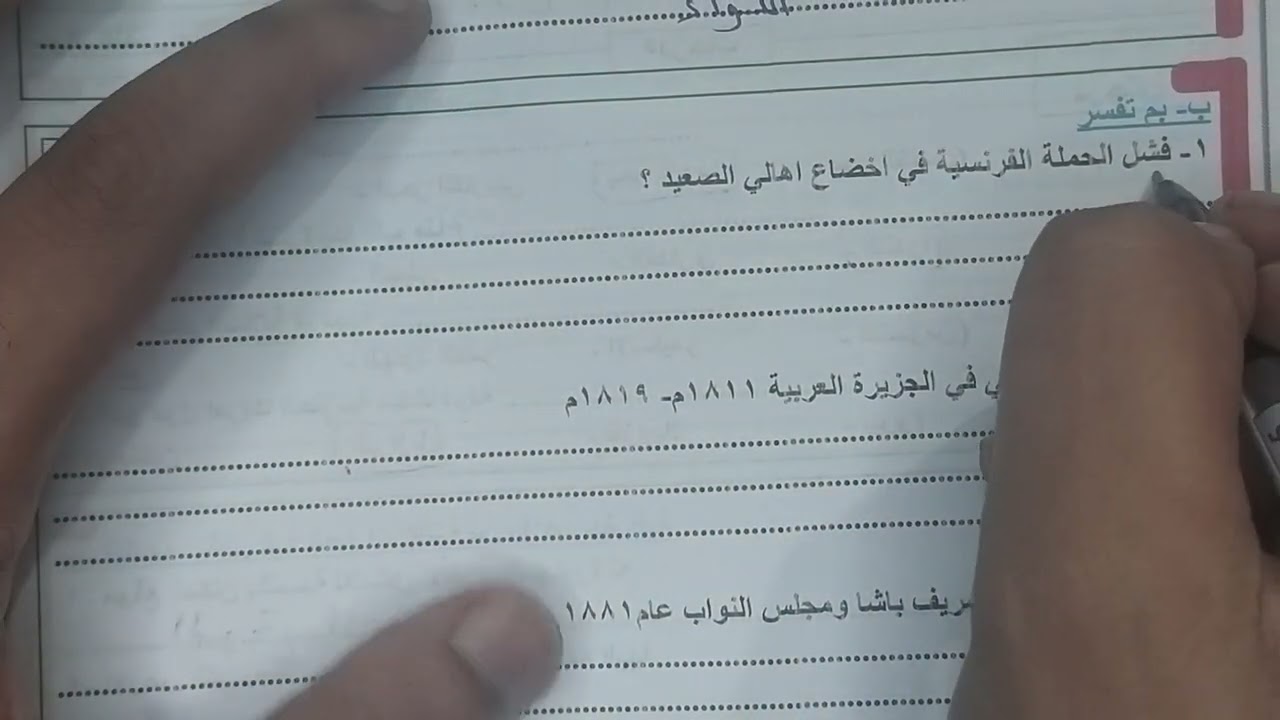 ب- بم تفسر
١- فشل الحملة الفرنسية في اخضاع اهالي الصعيد ؟
في الجزيرة العربية ١٨١١م- ١٨١٩م
باشا ومجلس النواب عام ١٨٨١